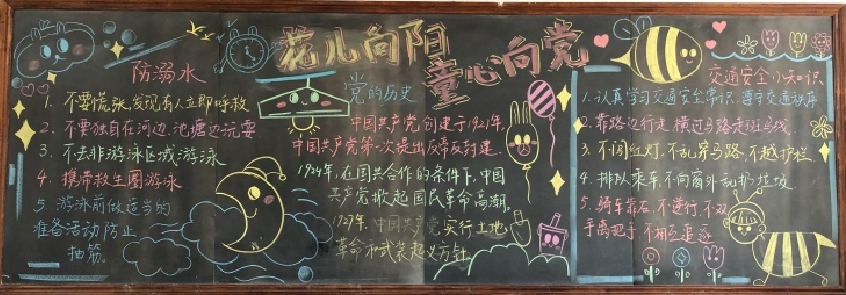 花儿向阳
童心向党
防溺水
1. 不要慌张,发现有人立即呼救
2. 不要独自在河边、池塘边玩耍
3. 不去非游泳区域游泳
4. 携带救生圈游泳
5. 游泳前做适当的
准备活动防止
抽筋。
党的历史
中国共产党创建于1921年,
中国共产党第一次提出反帝反封建.
1924年,在国共合作的条件下,中国
共产党掀起国民革命高潮,
1927年,中国共产党实行土地
革命和武装起义方针
交通安全小知识
1. 认真学习交通安全常识,遵守交通秩序
2. 靠路边行走,横过马路走斑马线.
3. 不闯红灯,不乱穿马路,不越护栏
4. 排队乘车,不向窗外乱扔垃圾.
5. 骑车靠右,不逆行,不双
手离把手,不相互追逐